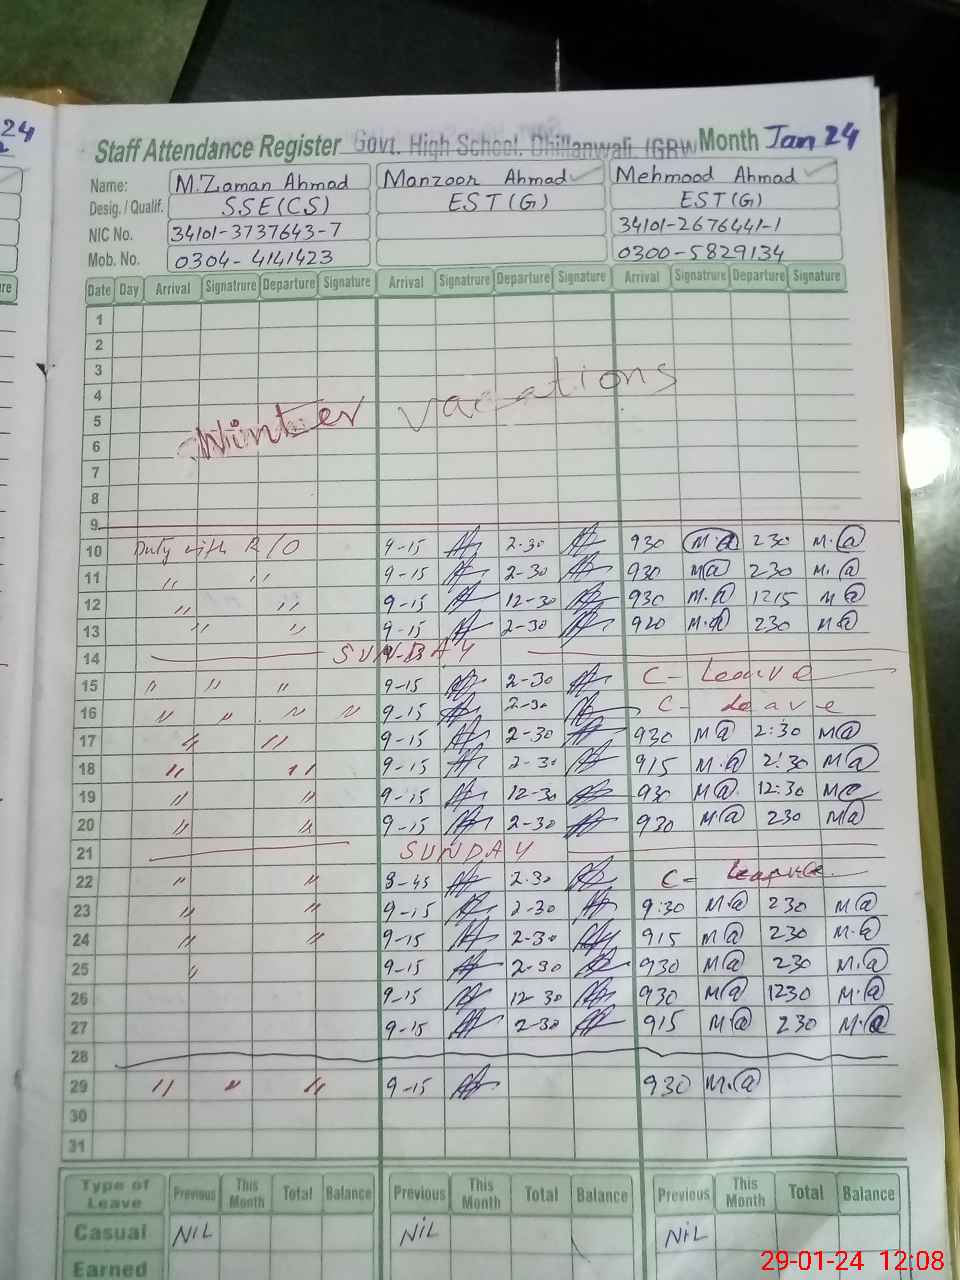 24
Staff Attendance Register Govt. High School, Dhillanwali, (GRW Month Jan 24
Name: M. Zaman Ahmad Manzoor Ahmad Mehmood Ahmad
Desig. / Qualif. SSE(CS) EST(G) EST(G)
NIC No. 34101-3737643-7 34101-2676441-1
Mob. No. 0304-4141423 0300-5829134
Date Day Arrival Signatrure Departure Signature Arrival Signatrure Departure Signature Arrival Signatrure Departure Signature
1
2
3
4
Winter vacations
5
6
7
8
9
10 Duty with R/O 9-15 2-30 930 M.a 230 M.a
11 " " 9-15 2-30 930 Ma 230 M.a
12 " " 9-15 12-30 930 M.a 1215 Ma
13 " " 9-15 2-30 920 M.a 230 Ma
14 SUNDAY
15 " " " 9-15 2-30 C- Leave
16 " " " " 9-15 2-30 C- Leave
17 " " 9-15 2-30 930 Ma 2:30 Ma
18 " " 9-15 2-30 915 M.a 2:30 Ma
19 " " 9-15 12-30 930 Ma 12:30 Ma
20 " " 9-15 2-30 930 Ma 230 Ma
21 SUNDAY
22 " " 8-45 2-30 C- Leave
23 " " 9-15 2-30 9:30 M.a 230 Ma
24 " " 9-15 2-30 915 Ma 230 M.a
25 " 9-15 2-30 930 Ma 230 M.a
26 9-15 12-30 930 Ma 1230 M.a
27 9-15 2-30 915 Ma 230 M.a
28
29 " " " 9-15 930 M.a
30
31
Type of Leave Previous This Month Total Balance Previous This Month Total Balance Previous This Month Total Balance
Casual NIL NIL NIL
Earned
29-01-24 12:08